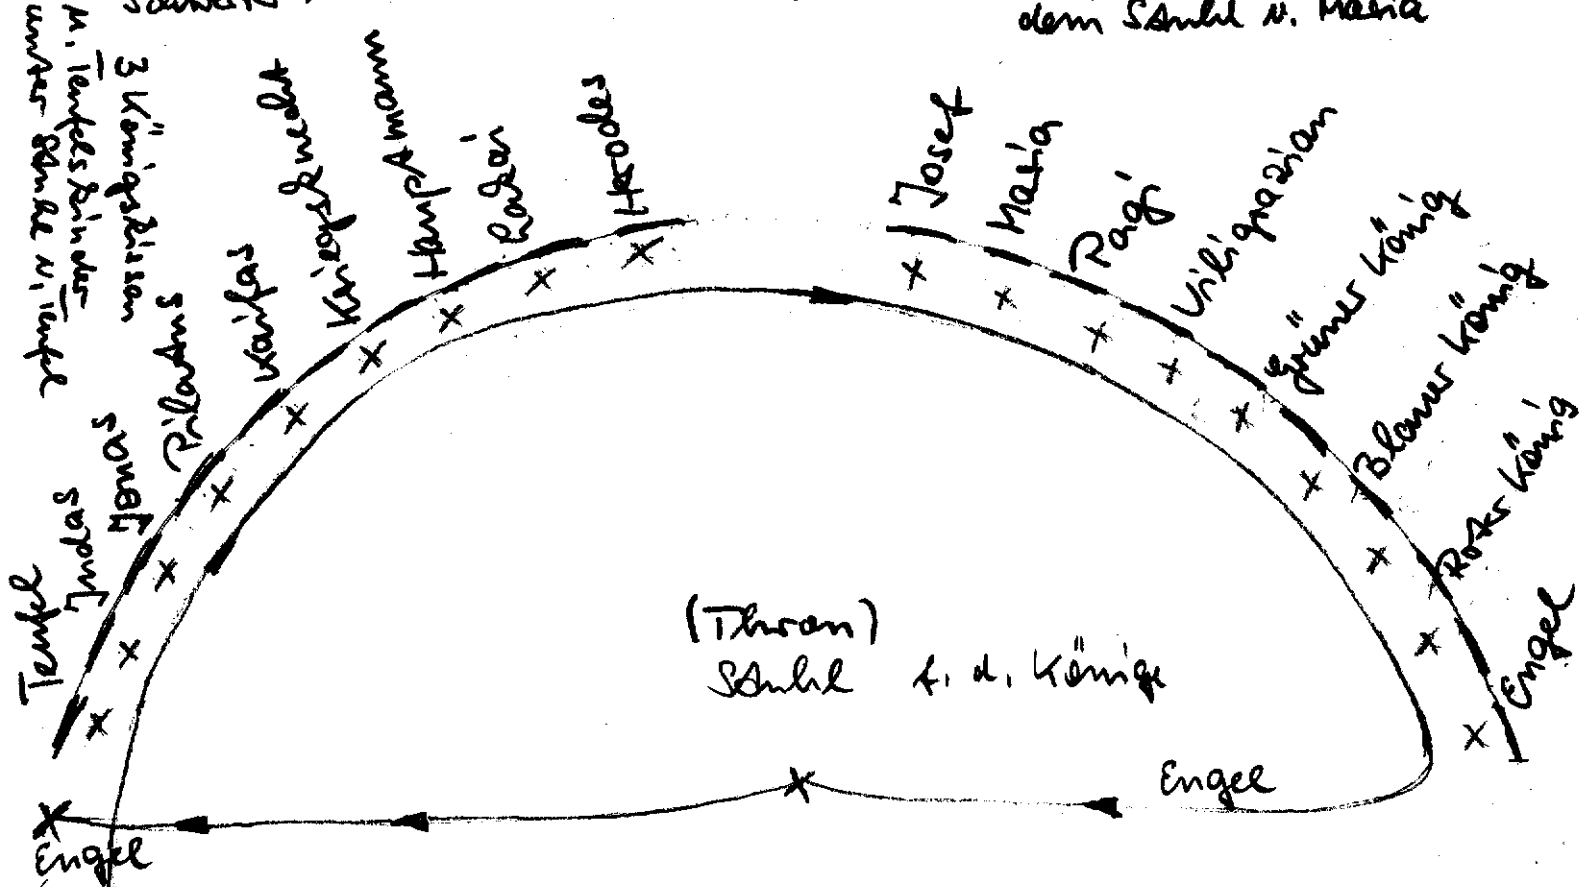 dem Stuhl v. Maria
3 Königskissen
M. Teufelskinder
unter Stuhl v. Teufel
Teufel
Judas
Jonas
Pilatus
Kaifas
Kriegsknecht
Hauptmann
Lakai
Herodes
Josef
Maria
Pagi
Viligrazian
Grüner König
Blauer König
Roter König
Engel
(Thron)
Stuhl f. d. Könige
Engel
Engel